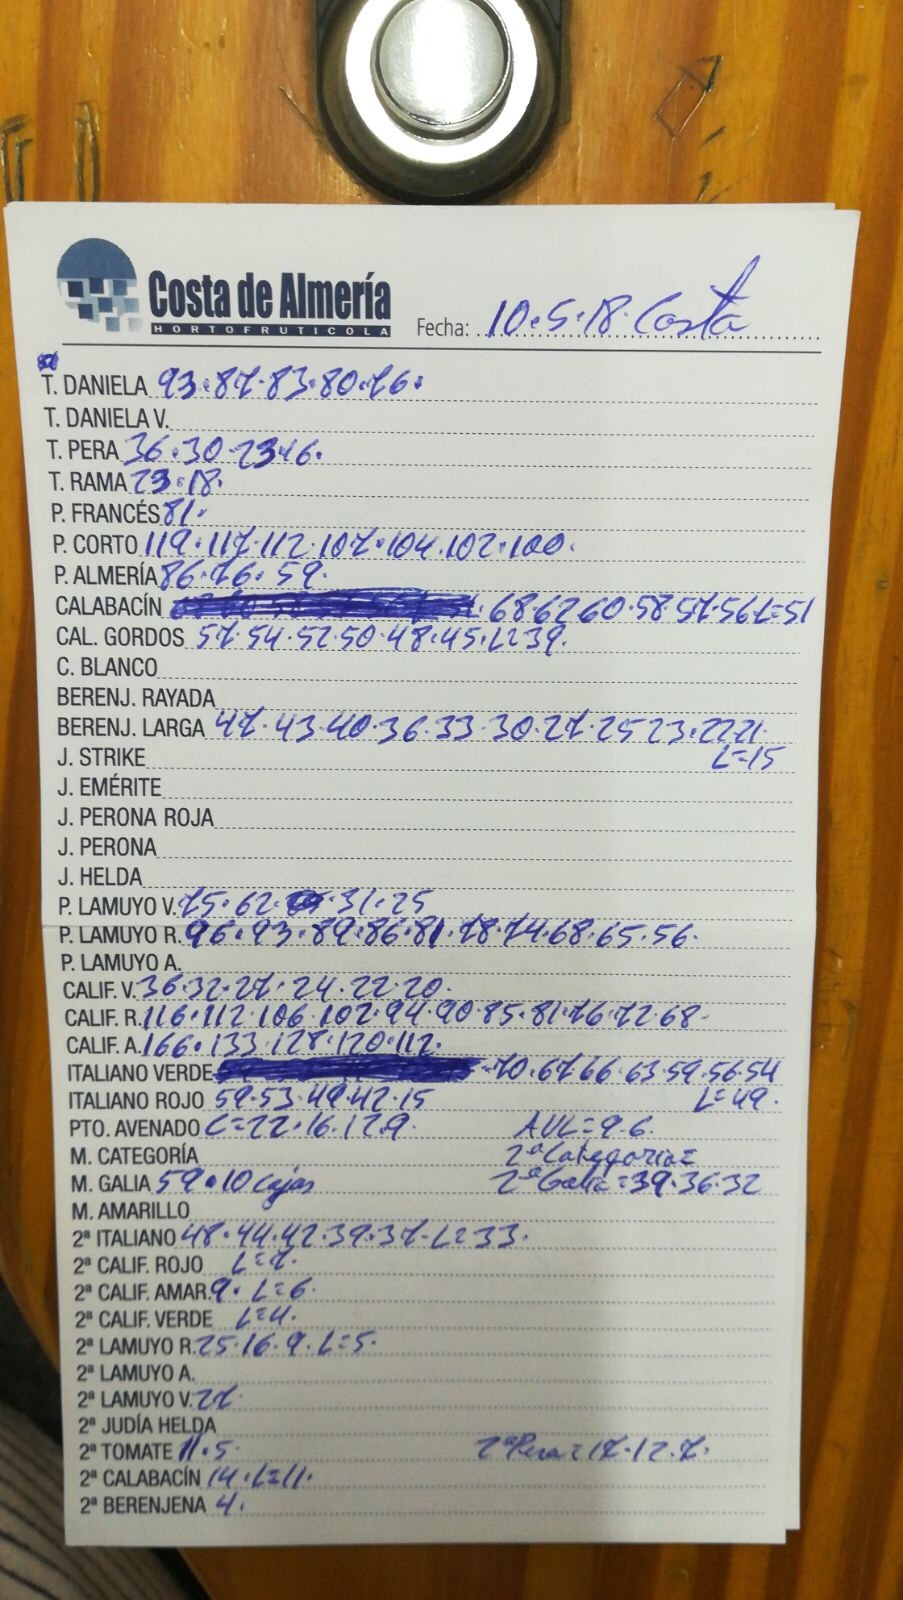 Costa de Almería
HORTOFRUTICOLA
Fecha: 10.5.18. Costa
T. DANIELA 93.87.83.80.76.
T. DANIELA V.
T. PERA 36.30.23
T. RAMA 23.18.
P. FRANCÉS 81.
P. CORTO 119.117.112.107.104.102.100.
P. ALMERÍA 86.76.59.
CALABACÍN 68.62.60.58.57.56 L=51
CAL. GORDOS 57.54.52.50.48.45.L=39.
C. BLANCO
BERENJ. RAYADA
BERENJ. LARGA 47.43.40.36.33.30.27.25.23.22.21.
J. STRIKE L=15
J. EMÉRITE
J. PERONA ROJA
J. PERONA
J. HELDA
P. LAMUYO V. 75.62.31.25
P. LAMUYO R. 96.93.89.86.81.78.74.68.65.56.
P. LAMUYO A.
CALIF. V. 36.32.27.24.22.20.
CALIF. R. 116.112.106.102.94.90.85.81.76.72.68.
CALIF. A. 166.133.128.120.112.
ITALIANO VERDE 70.67.66.63.59.56.54
ITALIANO ROJO 59.53.49.42.15 L=49.
PTO. AVENADO C=22.16.12.9. AVL=9.6.
M. CATEGORÍA 2ª Categoria=
M. GALIA 59.10 cajas 2ª Galia=39.36.32
M. AMARILLO
2ª ITALIANO 48.44.42.39.37.L=33.
2ª CALIF. ROJO L=7.
2ª CALIF. AMAR. 9. L=6.
2ª CALIF. VERDE L=4.
2ª LAMUYO R. 25.16.9.L=5.
2ª LAMUYO A.
2ª LAMUYO V. 27.
2ª JUDÍA HELDA
2ª TOMATE 11.5. 2ª Pera=17.12.7.
2ª CALABACÍN 14.L=11.
2ª BERENJENA 4.